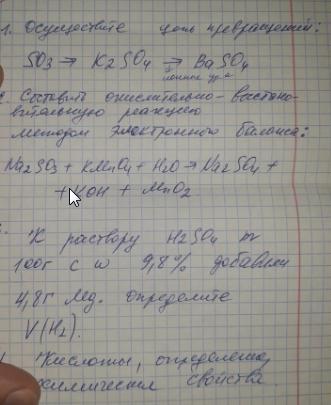 1. Осуществите цепь превращений:
SO3 → K2SO4 → BaSO4
ионное ур-е
2. Составить окислительно-восстано-
вительную реакцию
методом электронного баланса:
Na2SO3 + KMnO4 + H2O → Na2SO4 +
+ KOH + MnO2
К раствору H2SO4 m
100г с w 9,8% добавили
4,8г Mg. определите
V(H2).
Кислоты, определение,
химические свойства.